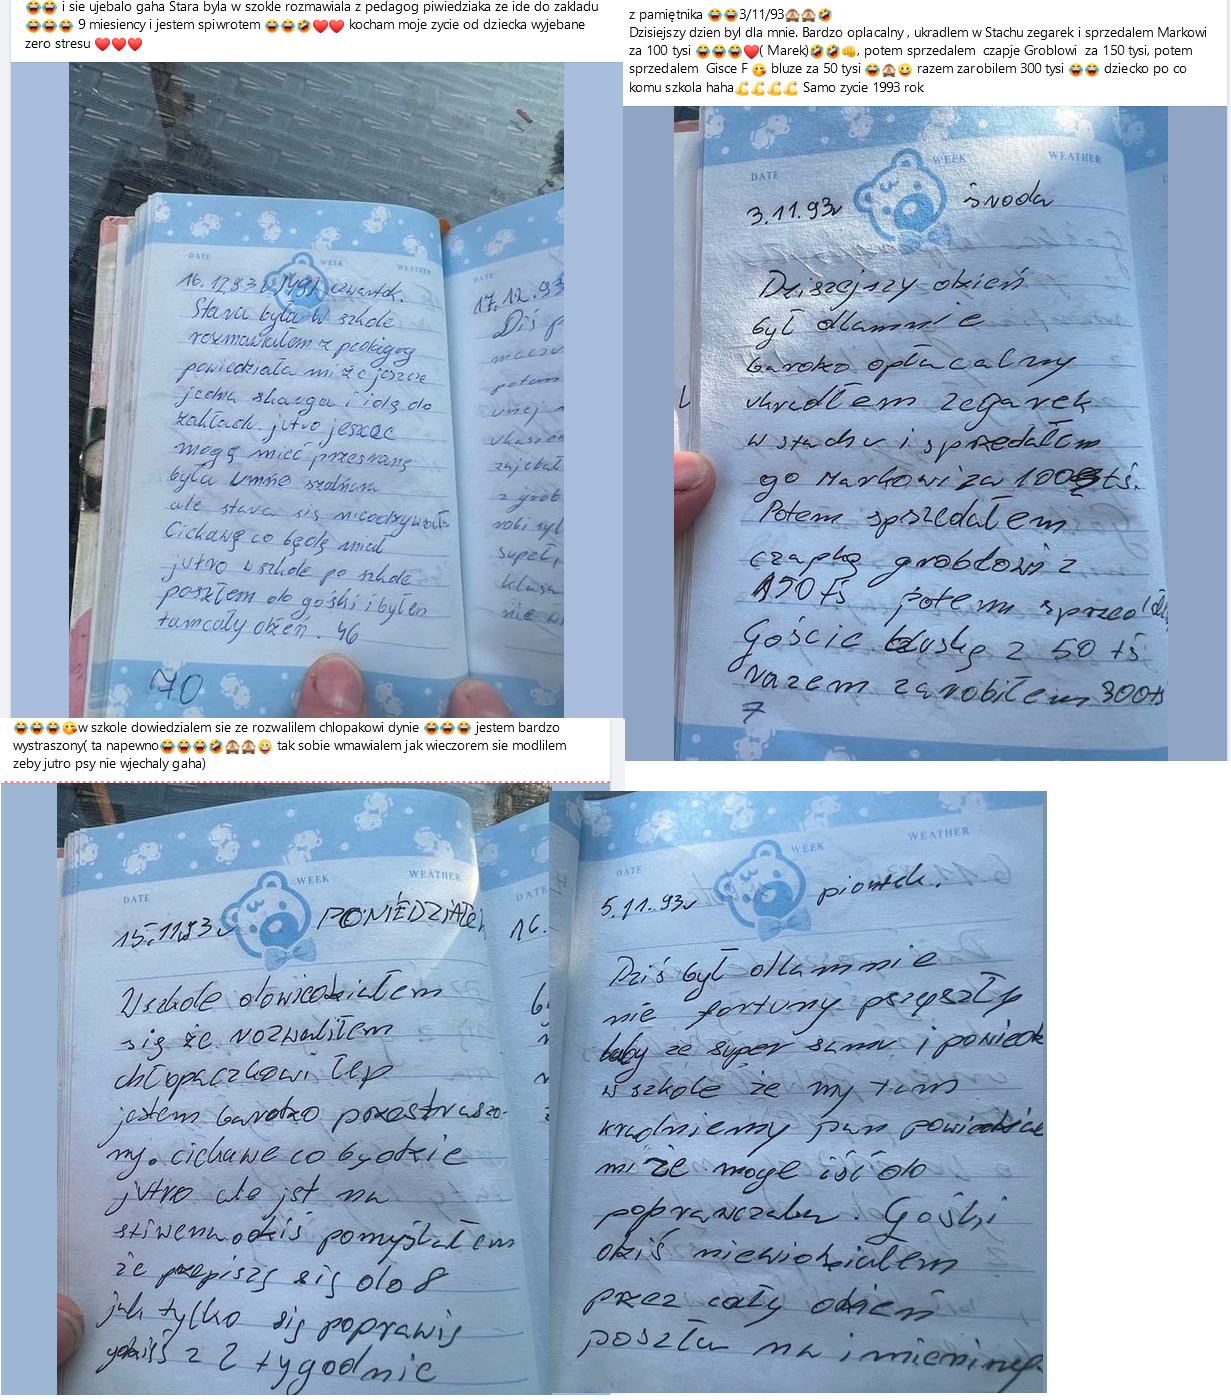 😂😂 i sie ujebalo gaha Stara byla w szokle rozmawiala z pedagog piwiedziaka ze ide do zakladu
😂😂😂 9 miesiency i jestem spiwrotem 😂😂🤣❤️❤️ kocham moje zycie od dziecka wyjebane
zero stresu ❤️❤️❤️
DATE WEEK WEATHER
16.12.93 czwartek.
Stara była w szkole
rozmawiałem z pedagog
powiedziała mi że jeszcze
jedna skarga i idę do
zakładu. jutro jeszcze
mogę mieć przesrane
była umnie
ale stara się nieodzywała
Cichawę co będę miał
jutro w szkole po szkole
poszłem do gośki i byłem
tamcały dzień. 46
70
DATE
17.12.93
Diś
z pamiętnika 😂😂3/11/93🙈🙈🤣
Dzisiejszy dzien byl dla mnie. Bardzo oplacalny , ukradlem w Stachu zegarek i sprzedalem Markowi
za 100 tysi 😂😂😂❤️( Marek)🤣🤣👊, potem sprzedalem czapje Groblowi za 150 tysi, potem
sprzedalem Gisce F 😘 bluze za 50 tysi 😂🙈😀 razem zarobilem 300 tysi 😂😂 dziecko po co
komu szkola haha💪💪💪💪 Samo zycie 1993 rok
DATE WEEK WEATHER
3.11.93r środa
Dziszejszy dzień
był dlamnie
bardzo opłacalny
ukradłem zegarek
w stachu i sprzedałem
go Markowi za 100 tś.
Potem sprzedałem
czapkę grobłowi z
150 tś potem sprzedał
Gościc bluskę z 50 tś
razem zarobiłem 300ts
7
😂😂😂😘w szkole dowiedzialem sie ze rozwalilem chlopakowi dynie 😂😂😂 jestem bardzo
wystraszony( ta napewno😂😂😂🤣🙈🙈😀 tak sobie wmawialem jak wieczorem sie modlilem
zeby jutro psy nie wjechaly gaha)
DATE WEEK WEATHER
15.11.93r PONIEDZIAŁEK
Wszkole dowiedziałem
się że rozwaliłem
chłopaczkowi łep
jestem bardzo przestraszo-
ny. cichawe co będzie
jutro ale jst na
dziś pomyślałem
że przepiszę się do 8
jak tylko się poprawię
z 2 tygodnie
DATE
16.
DATE WEEK WEATHER
5.11.93r piontek.
Dziś był dlamnie
nie fortuny pszyszły
baby ze super samu i powiedz
w szkole że my tam
kradniemy pan powiedział
mi że moge iść do
poprawczaka. Gośki
dziś niewidziałem
przez cały dzień
poszła na imieniny